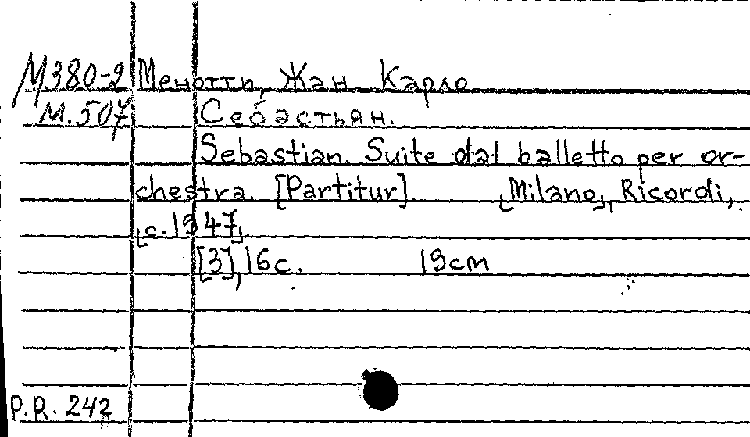 М380-2 Менотти, Жан Карло
М.507 Себастьян.
Sebastian. Suite dal balletto per or-
chestra. [Partitur]. [Milano], Ricordi,
[c.1947].
[3], 16с. 19cm
P.R. 242